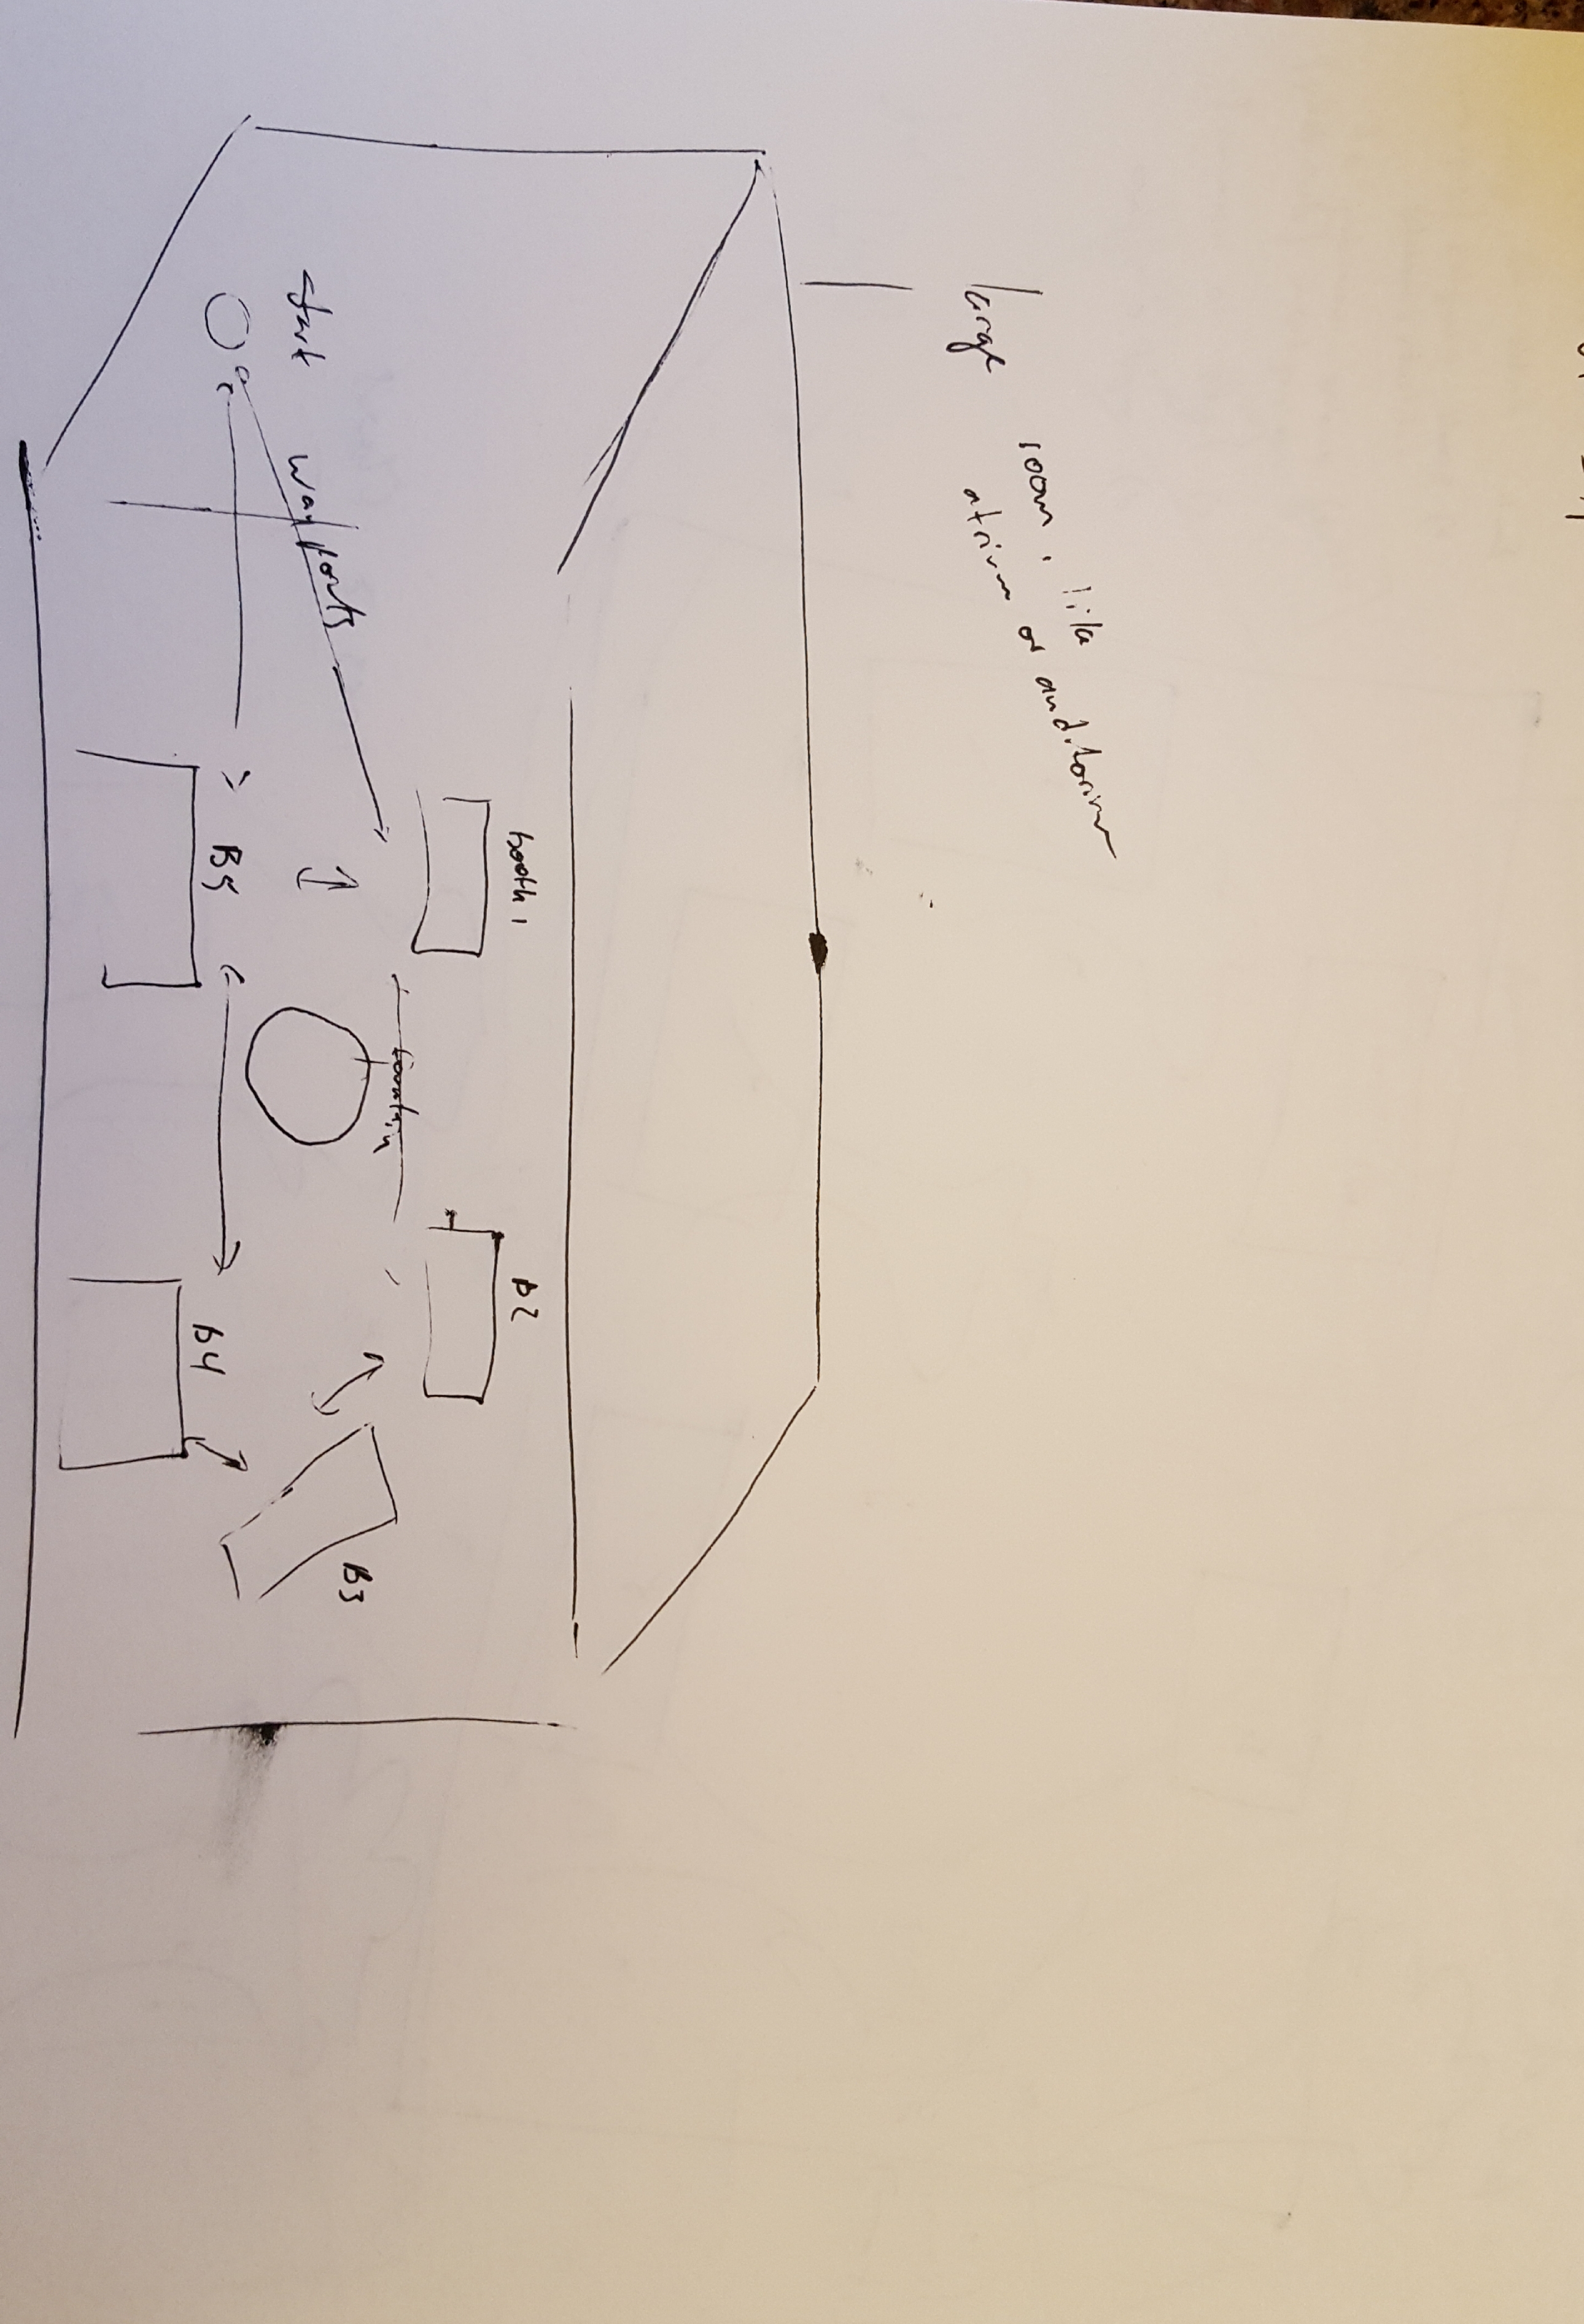 large room, like
atrium or auditorium
start
waypoints
booth 1
B5
fountain
b2
b4
B3